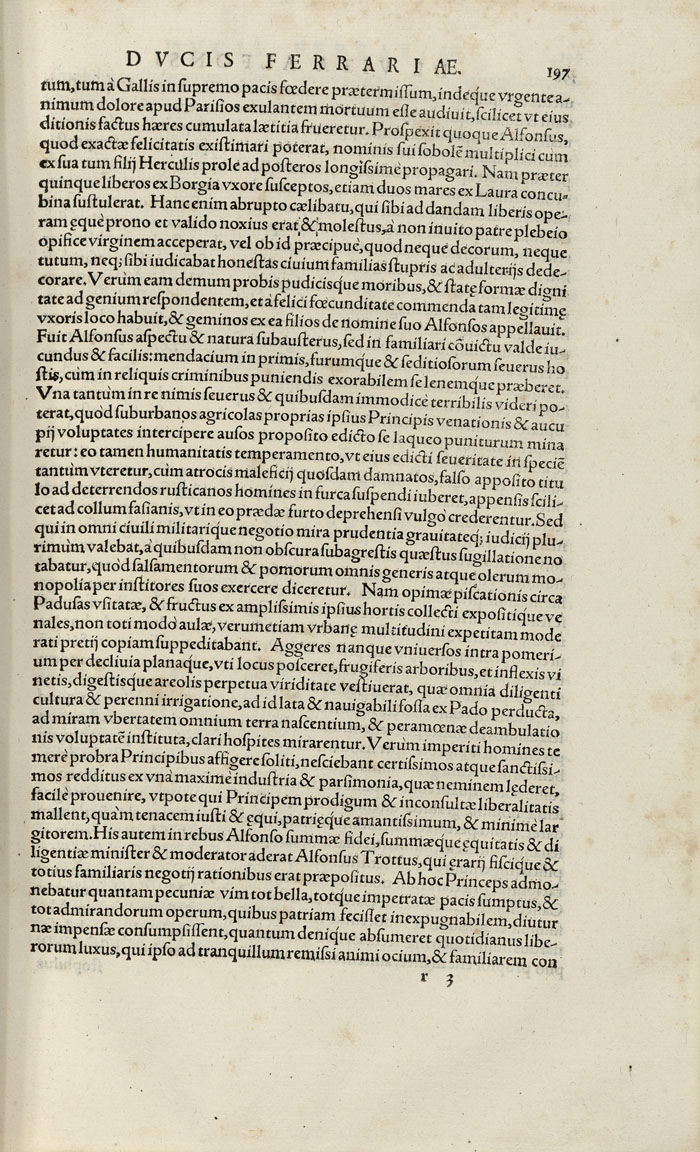 DVCIS FERRARIAE. 197
tum, tum à Gallis in ſupremo pacis fœdere prætermiſſum, indeque vrgente a-
nimum dolore apud Pariſios exulantem mortuum eſſe audiuit, ſcilicet vt eius
ditionis factus hæres cumulata lætitia frueretur. Proſpexit quoque Alfonſus,
quod exactæ felicitatis exiſtimari poterat, nominis ſui ſobolẽ multiplici cum
ex ſua tum filij Herculis prole ad poſteros longiſsimè propagari. Nam præter
quinque liberos ex Borgia vxore ſuſceptos, etiam duos mares ex Laura concu-
bina ſuſtulerat. Hanc enim abrupto cælibatu, qui ſibi ad dandam liberis ope-
ram ęquè prono et valido noxius erat & moleſtus, à non inuito patre plebeio
opifice virginem acceperat, vel ob id præcipuè, quod neque decorum, neque
tutum, neq; ſibi iudicabat honeſtas ciuium familias ſtupris ac adulterijs dede-
corare. Verùm eam demum probis pudicisque moribus, & ſtate formæ digni
tate ad genium reſpondentem, et à felici fœcunditate commendatam legitimę
vxoris loco habuit, & geminos ex ea filios de nomine ſuo Alfonſos appellauit.
Fuit Alfonſus aſpectu & natura ſubauſterus, ſed in familiari cõuictu valde iu-
cundus & facilis: mendacium in primis, furumque & ſeditioſorum ſeuerus ho
ſtis, cùm in reliquis criminibus puniendis exorabilem ſe lenemque præberet.
Vna tantùm in re nimis ſeuerus & quibuſdam immodicè terribilis videri po-
terat, quòd ſuburbanos agricolas proprias ipſius Principis venationis & aucu
pij voluptates intercipere auſos propoſito edicto ſe laqueo puniturum mina
retur: eo tamen humanitatis temperamento, vt eius edicti ſeueritate in ſpeciẽ
tantùm vteretur, cùm atrocis maleficij quoſdam damnatos, falſo appoſito titu
lo ad deterrendos ruſticanos homines in furca ſuſpendi iuberet, appenſis ſcili-
cet ad collum faſianis, vt in eo prædæ furto deprehenſi vulgò crederentur. Sed
qui in omni ciuili militarique negotio mira prudentia grauitateq; iudicij plu-
rimùm valebat, à quibuſdam non obſcura ſubagreſtis quæſtus ſugillatione no
tabatur, quòd ſalſamentorum & pomorum omnis generis atque olerum mo-
nopolia per inſtitores ſuos exercere diceretur. Nam opimæ piſcationis circa
Paduſas vſitatæ, & fructus ex ampliſsimis ipſius hortis collecti expoſitique ve
nales, non toti modò aulæ, verumetiam vrbanę multitudini expetitam mode
rati pretij copiam ſuppeditabant. Aggeres nanque vniuerſos intra pomeri-
um per decliuia planaque, vti locus poſceret, frugiferis arboribus, et inflexis vi
netis, digeſtisque areolis perpetua viriditate veſtiuerat, quæ omnia diligenti
cultura & perenni irrigatione, ad id lata & nauigabili foſſa ex Pado perducta,
ad miram vbertatem omnium terra naſcentium, & peramœnæ deambulatio
nis voluptatẽ inſtituta, clari hoſpites mirarentur. Verùm imperiti homines te
merè probra Principibus affigere ſoliti, neſciebant certiſsimos atque ſanctiſsi-
mos redditus ex vna maximè induſtria & parſimonia, quæ neminem lęderet,
facilè prouenire, vtpote qui Principem prodigum & inconſultæ liberalitatis
mallent, quàm tenacem iuſti & ęqui, patrięque amantiſsimum, & minimè lar
gitorem. His autem in rebus Alfonſo ſummæ fidei, ſummæque ęquitatis & di
ligentiæ miniſter & moderator aderat Alfonſus Trottus, qui ęrarij fiſcique &
totius familiaris negotij rationibus erat præpoſitus. Ab hoc Princeps admo-
nebatur quantam pecuniæ vim tot bella, totque impetratæ pacis ſumptus, &
tot admirandorum operum, quibus patriam feciſſet inexpugnabilem, diutur
næ impenſæ conſumpſiſſent, quantum denique abſumeret quotidianus libe-
rorum luxus, qui ipſo ad tranquillum remiſsi animi ocium, & familiarem con
r 3